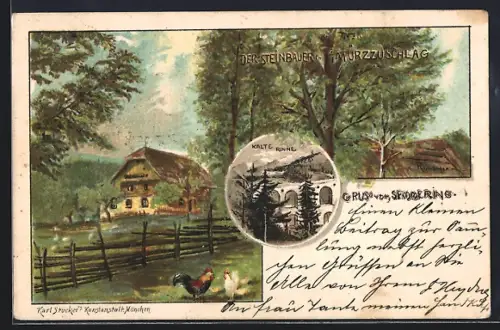 DER STEINBAUER I. MÜRZZUSCHLAG
KALTE
RINNE
GRUSS VOM SEMMERING
Einen kleinen
Beitrag zur Sam-
lung mit herzli-
chen Grüssen an Sie
Alle von Ihrem
An frau Tante meinen
Karl Stücker's Kunstanstalt, München